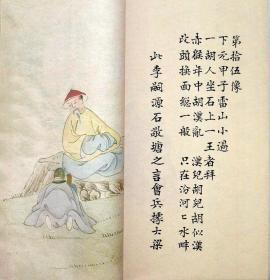 第拾伍像
下元甲子雷山小過
一胡人坐石上一王者拜
赤猴年中胡漢亂漢兒胡兒胡似漢
改頭換面總一般只在汾河河水畔
此李嗣源石敬塘之言會兵據士梁